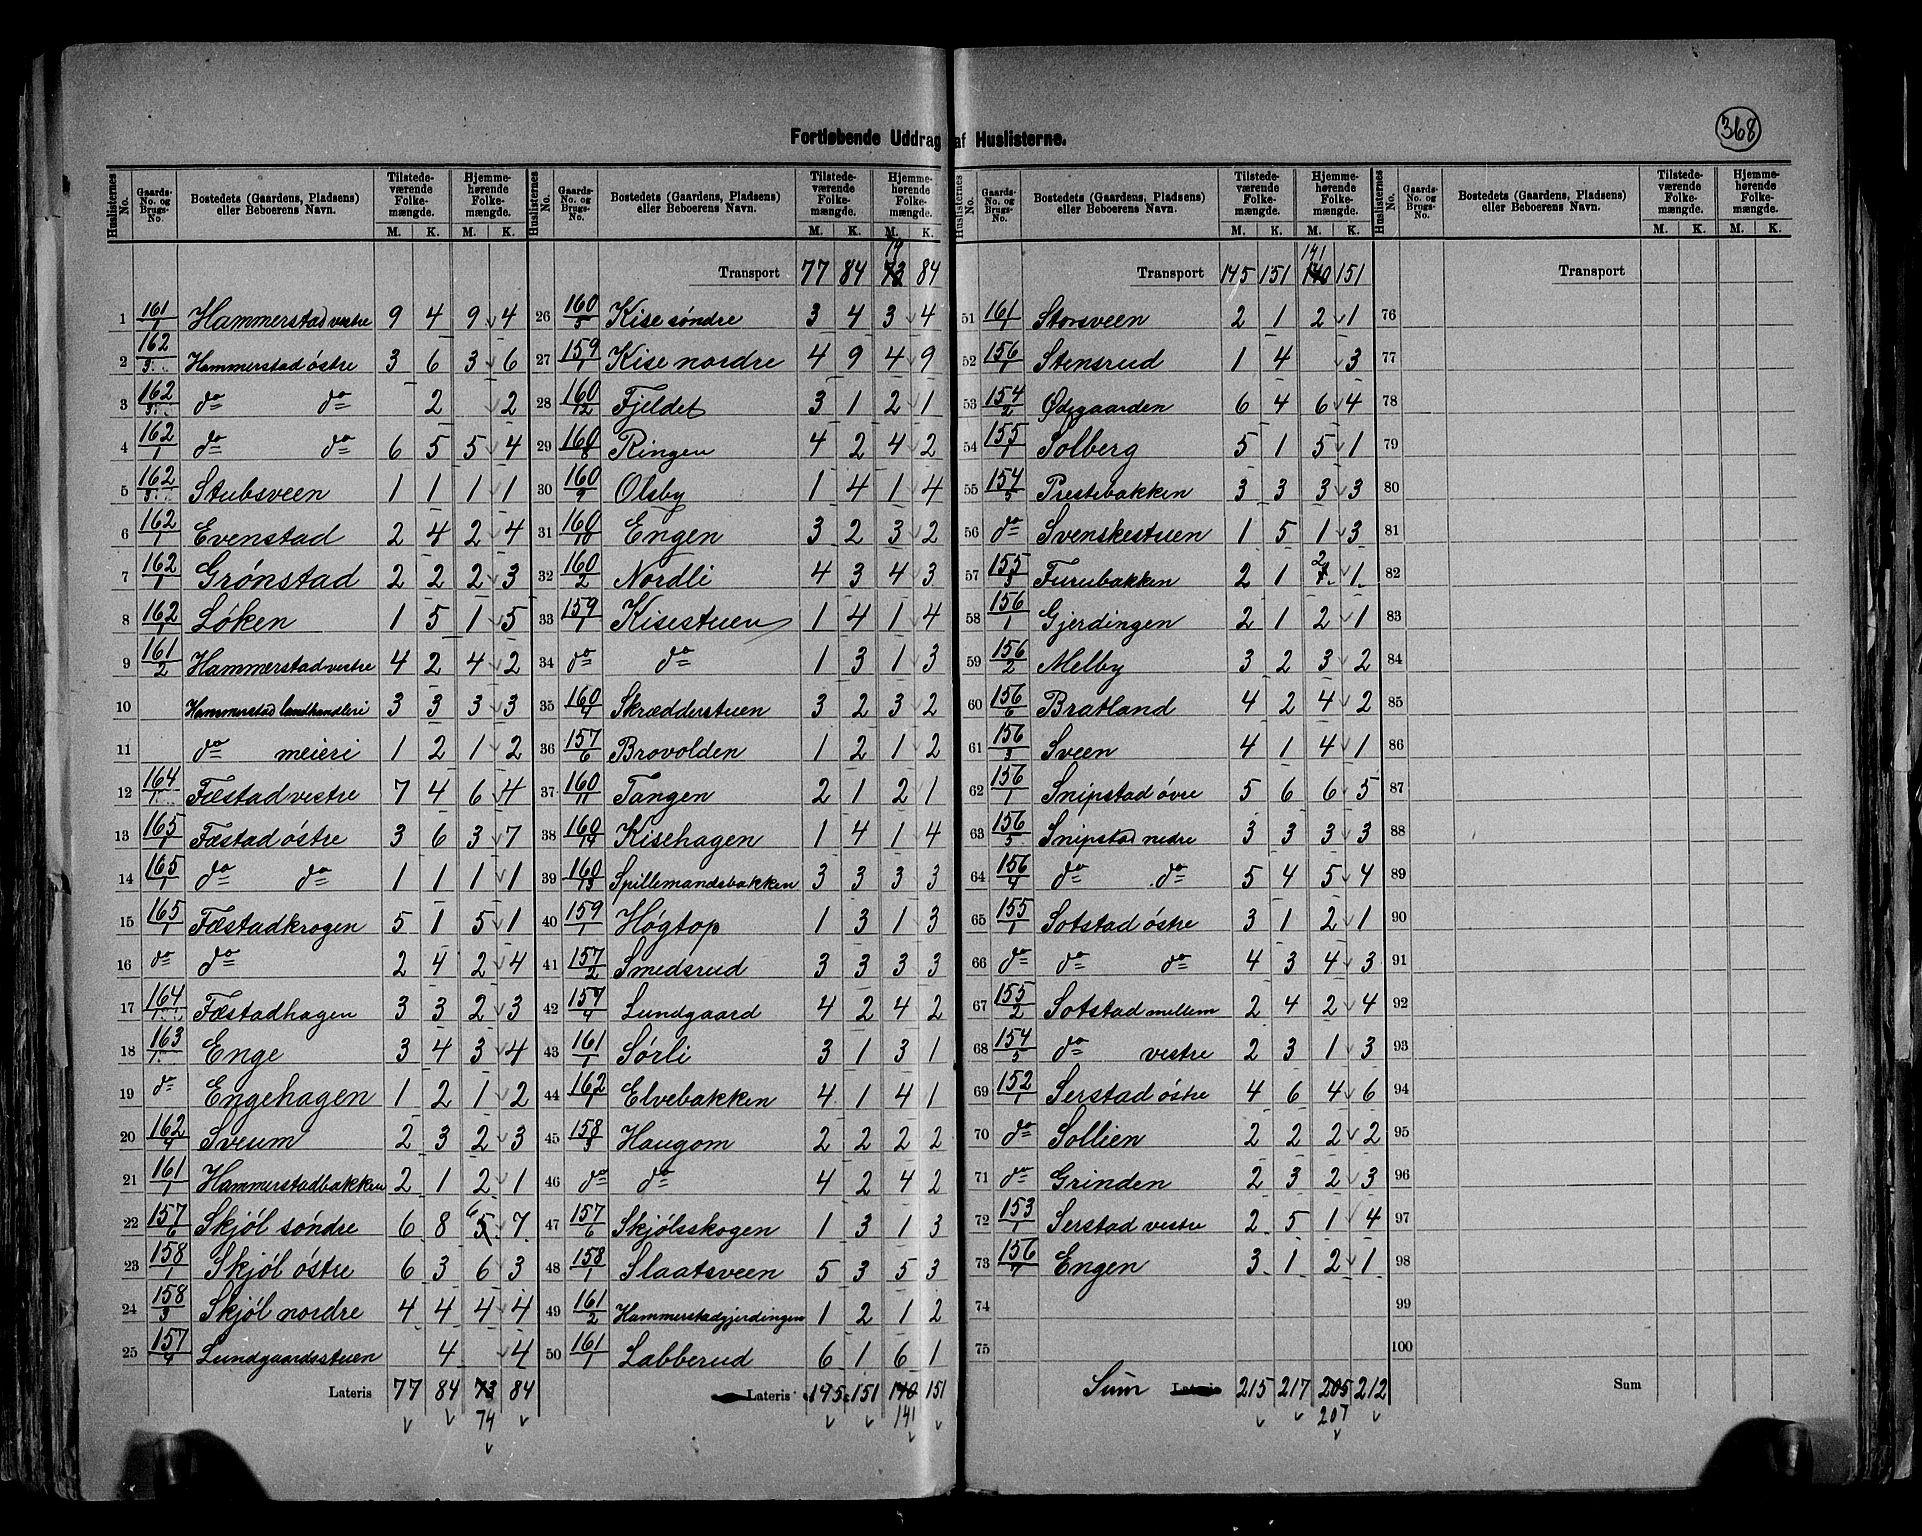 368
Fortløbende Uddrag af Huslisterne.
Huslisternes No. Gaards-No. og Brugs-No. Bostedets (Gaardens, Pladsens) eller Beboerens Navn. Tilstedeværende Folkemængde. M. K. Hjemmehørende Folkemængde. M. K.
1 161/1 Hammerstad vestre 9 4 9 4
2 162/3 Hammerstad östre 3 6 3 6
3 162/3 do do 2 2
4 162/1 do do 6 5 5 4
5 162/3 Stubsveen 1 1 1 1
6 162/1 Evenstad 2 4 2 4
7 162/1 Grønstad 2 2 2 3
8 162/1 Løken 1 5 1 5
9 161/2 Hammerstad vestre 4 2 4 2
10 Hammerstad landhandleri 3 3 3 3
11 do meieri 1 2 1 2
12 164/1 Fæstad vestre 7 4 6 4
13 165/1 Fæstad östre 3 6 3 7
14 165/1 do do 1 1 1 1
15 165/1 Fæstadkrogen 5 1 5 1
16 do do 2 4 2 4
17 164/1 Fæstadhagen 3 3 2 3
18 163/1 Enge 3 4 3 4
19 do Engehagen 1 2 1 2
20 162/4 Sveum 2 3 2 3
21 161/1 Hammerstadbakken 2 1 2 1
22 157/6 Skjøl söndre 6 8 6 5 7
23 158/1 Skjøl östre 6 3 6 3
24 158/3 Skjøl nordre 4 4 4 4
25 157/4 Lundgaardsstuen 4 4
Lateris 77 84 73 84
74
Huslisternes No. Gaards-No. og Brugs-No. Bostedets (Gaardens, Pladsens) eller Beboerens Navn. Tilstedeværende Folkemængde. M. K. Hjemmehørende Folkemængde. M. K.
74
Transport 77 84 73 84
26 160/5 Kise söndre 3 4 3 4
27 159/1 Kise nordre 4 9 4 9
28 160/12 Fjeldet 3 1 2 1
29 160/8 Ringen 4 2 4 2
30 160/9 Olsby 1 4 1 4
31 160/10 Engen 3 2 3 2
32 160/2 Nordli 4 3 4 3
33 159/1 Kisestuen 1 4 1 4
34 do do 1 3 1 3
35 160/4 Skrædderstuen 3 2 3 2
36 157/6 Brovolden 1 2 1 2
37 160/11 Tangen 2 1 2 1
38 160/14 Kisehagen 1 4 1 4
39 160/13 Spillemandsbakken 3 3 3 3
40 159/1 Høgtop 1 3 1 3
41 157/2 Smedsrud 3 3 3 3
42 157/4 Lundgaard 4 2 4 2
43 161/1 Sørli 3 1 3 1
44 162/1 Elvebakken 4 1 4 1
45 158/3 Haugom 2 2 2 2
46 do do 4 2 4 2
47 157/6 Skjølsskogen 1 3 1 3
48 158/1 Slaatsveen 5 3 5 3
49 161/2 Hammerstadgjerdingen 1 2 1 2
50 161/1 Labberud 6 1 6 1
Lateris 145 151 140 151
141
Huslisternes No. Gaards-No. og Brugs-No. Bostedets (Gaardens, Pladsens) eller Beboerens Navn. Tilstedeværende Folkemængde. M. K. Hjemmehørende Folkemængde. M. K.
141
Transport 145 151 140 151
51 161/1 Storsveen 2 1 2 1
52 156/1 Stensrud 1 4 3
53 154/2 Ødegaarden 6 4 6 4
54 155/1 Solberg 5 1 5 1
55 154/5 Prestebakken 3 3 3 3
56 do Svenskestuen 1 5 1 3
57 155/3 Furubakken 2 1 2 1
58 156/1 Gjerdingen 2 1 2 1
59 156/2 Melby 3 2 3 2
60 156/6 Bratland 4 2 4 2
61 156/3 Sveen 4 1 4 1
62 156/1 Snipstad övre 5 6 6 5
63 156/5 Snipstad nedre 3 3 3 3
64 156/4 do do 5 4 5 4
65 155/1 Sotstad östre 3 1 2 1
66 do do do 4 3 4 3
67 155/2 Sotstad mellem 2 4 2 4
68 154/5 do vestre 2 3 1 3
69 152/1 Serstad östre 4 6 4 6
70 do Sollien 2 2 2 2
71 do Grinden 2 3 2 3
72 153/1 Serstad vestre 2 5 1 4
73 156/7 Engen 3 1 2 1
74
75
Sum Lateris 215 217 205 212
207
Huslisternes No. Gaards-No. og Brugs-No. Bostedets (Gaardens, Pladsens) eller Beboerens Navn. Tilstedeværende Folkemængde. M. K. Hjemmehørende Folkemængde. M. K.
Transport
76
77
78
79
80
81
82
83
84
85
86
87
88
89
90
91
92
93
94
95
96
97
98
99
100
Sum